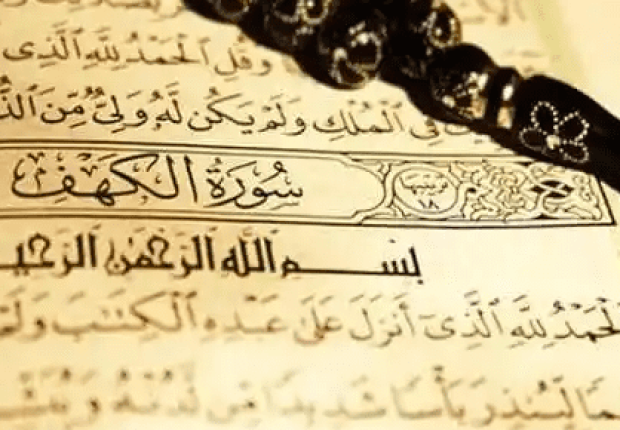 وَقُلِ ٱلْحَمْدُ لِلَّهِ ٱلَّذِى
فِى ٱلْمُلْكِ وَلَمْ يَكُن لَّهُۥ وَلِىٌّ مِّنَ ٱلذُّ
سُورَةُ الكَهْفِ
ترتيبها ١٨
بِسْمِ ٱللَّهِ ٱلرَّحْمَٰنِ ٱلرَّحِي
لْحَمْدُ لِلَّهِ ٱلَّذِىٓ أَنزَلَ عَلَىٰ عَبْدِهِ ٱلْكِتَٰبَ وَلَمْ
مًا لِّيُنذِرَ بَأْسًا شَدِيدًا مِّن لَّدُنْهُ وَيُبَشِّ